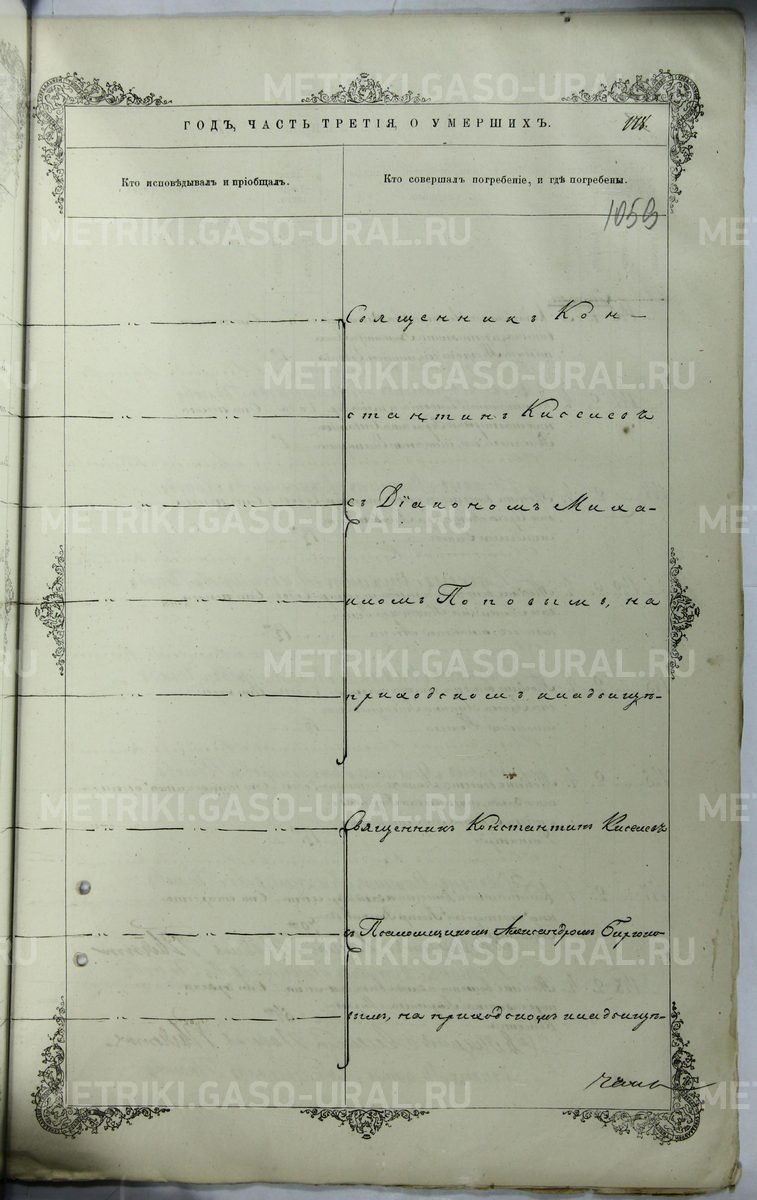 METRIKI.GASO-URAL.RU
ГОДЪ, ЧАСТЬ ТРЕТІЯ, О УМЕРШИХЪ.
Кто исповѣдывалъ и пріобщалъ.
Кто совершалъ погребеніе, и гдѣ погребены.
Священникъ Кон-
стантинъ Киселевъ
съ Діакономъ Миха-
иломъ Поповымъ, на
приходскомъ кладбищѣ
Священникъ Константинъ Киселевъ
съ Псаломщикомъ Александромъ
вымъ, на приходскомъ кладбищѣ